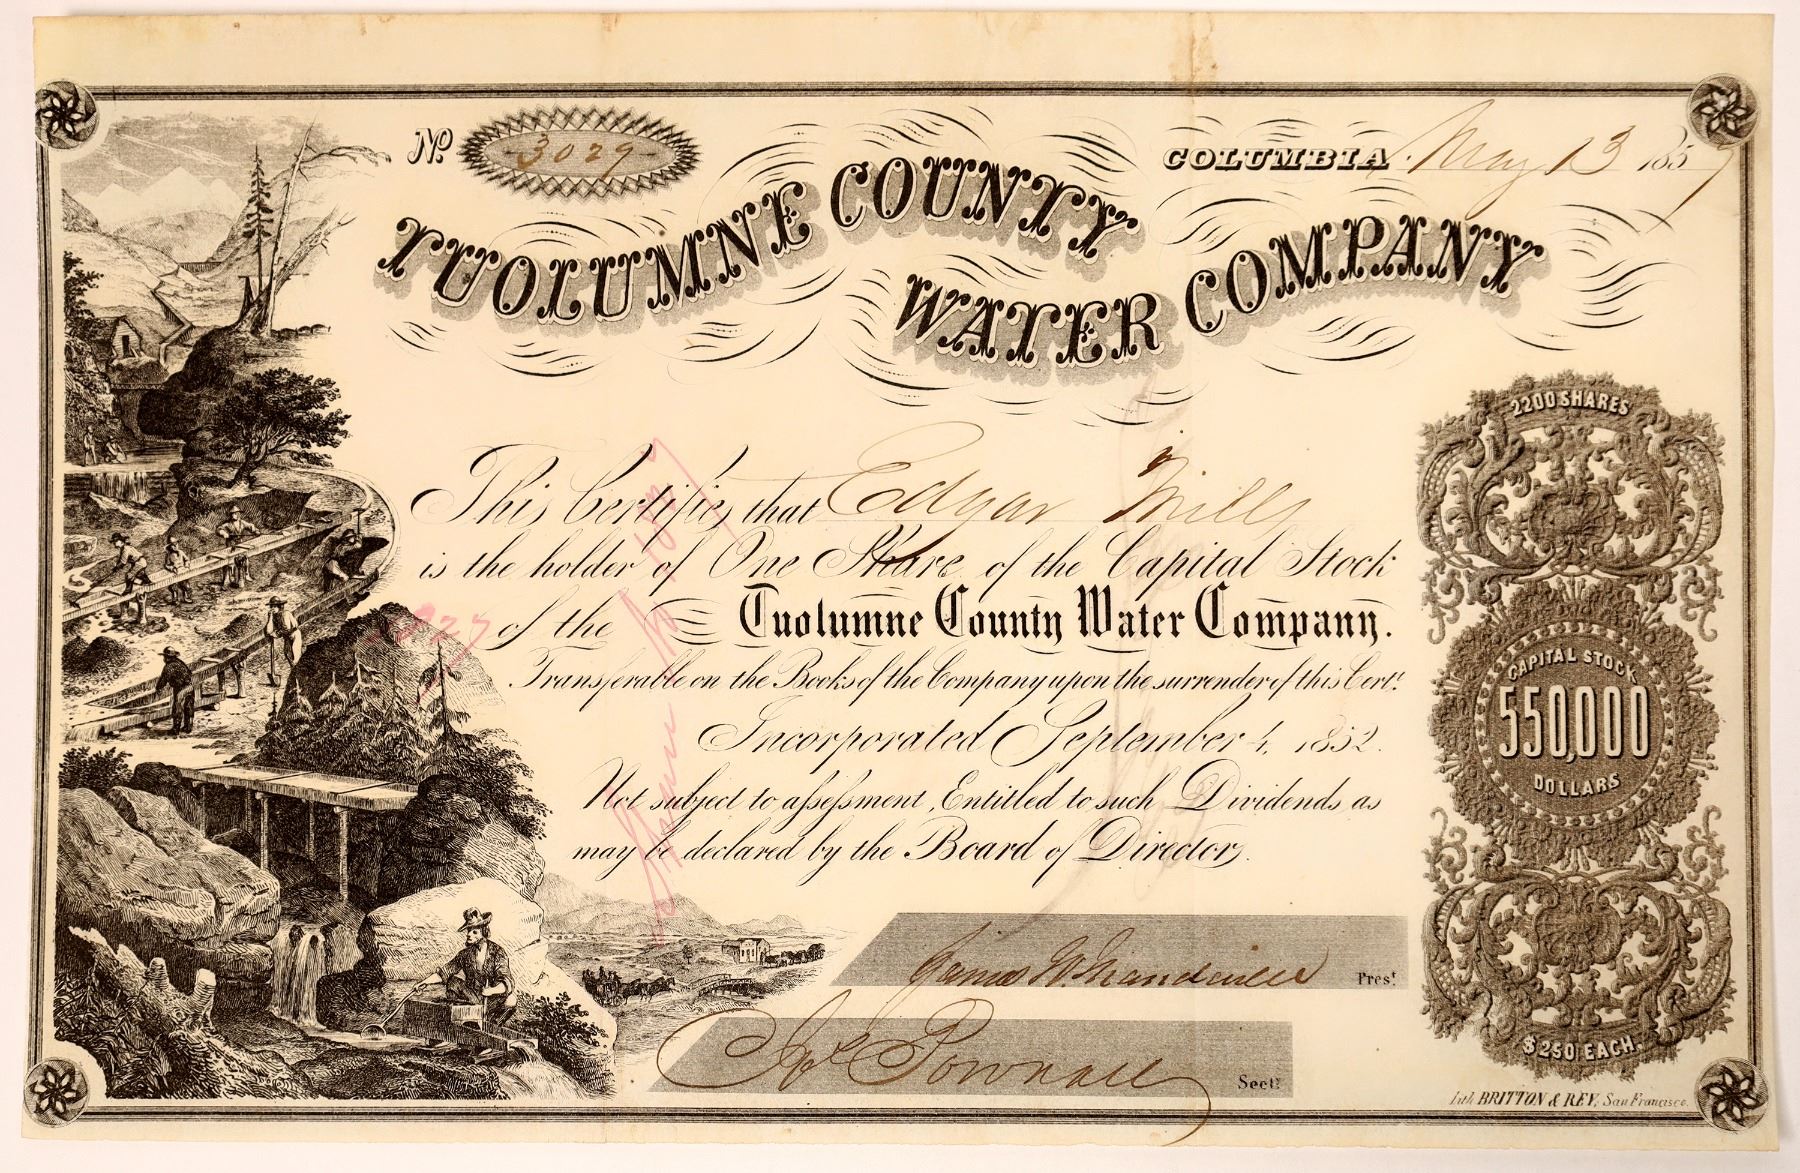 No. 3029
COLUMBIA May 13 1857
TUOLUMNE COUNTY
WATER COMPANY
This Certifies that Edgar Mills
is the holder of One Share of the Capital Stock
of the Tuolumne County Water Company.
Transferable on the Books of the Company upon the surrender of this Cert.
Incorporated September 4, 1852.
Not subject to assessment, Entitled to such Dividends as
may be declared by the Board of Directors.
James W. Mandeville Prest.
Jos. Pownall Secty.
2200 SHARES
CAPITAL STOCK
550,000
DOLLARS
$250 EACH
Lith. BRITTON & REY, San Francisco.